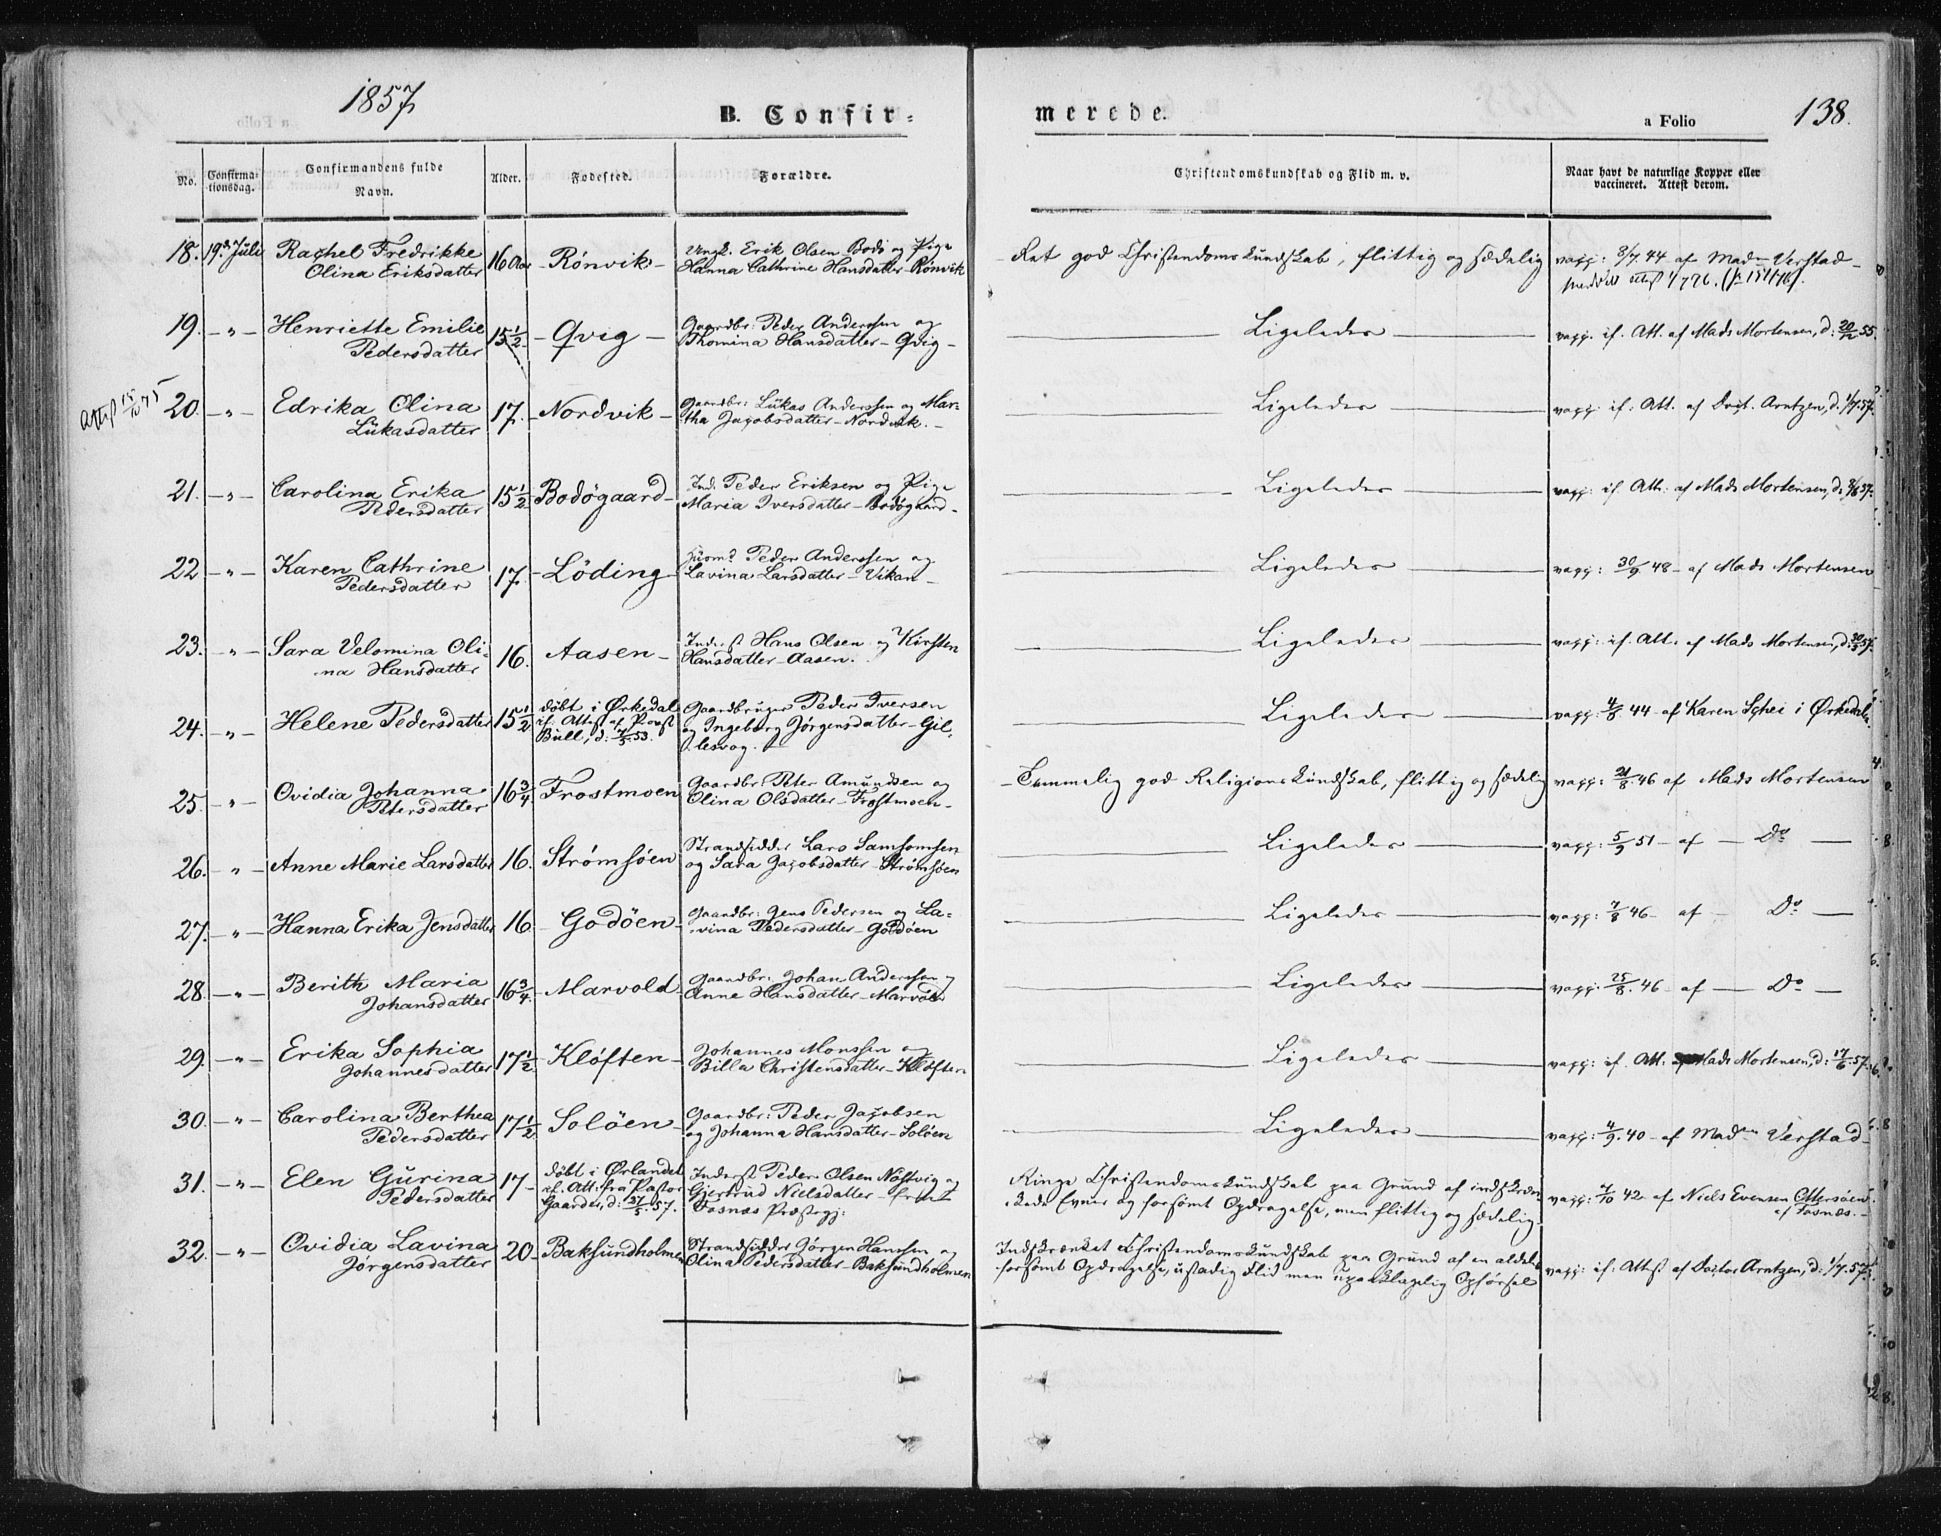 1857
B. Confir-
merede.
a Folio
138.
No.
Confirma-
tionsdag.
Confirmandens fulde
Navn.
Alder.
Fødested.
Forældre.
Christendomskundskab og Flid m. v.
Naar havt de naturlige Kopper eller
vaccineret. Attest derom.
18. 19de Juli Rachel Fredrikke
Olina Eriksdatter 16 Aar - Rönvik -
Ungk. Erik Olsen Bodö og Pige
Hanna Cathrine Hansdatter Rönvik
Ret god Christendomskundskab, flittig og sædelig
vacc: 3/7 44 af Madm Verstad -
19. - " - Henriette Emilie
Pedersdatter 15 1/2 - Qvig -
Gaardbr: Peder Anderssen og
Thomina Hansdatter - Qvig -
Ligeledes
vacc. if. Att. af Mads Mortensen, d: 20/12 55.
Attest 15/10 75
20. - " - Edrika Olina
Lükasdatter 17. - Nordvik -
Gaardbr: Lükas Anderssen og Mar-
tha Jacobsdatter - Nordvik. -
Ligeledes
vacc. if: Att. af Doct. Arntzen, d. 1/7 57.
21. - " - Carolina Erika
Pedersdatter 15 1/2 Bodögaard -
Ind. Peder Eriksen og Pige
Maria Iversdatter - Bodögaard -
Ligeledes
vacc: if. Att. af Mads Mortensen, d: 57.
22 - " - Karen Cathrine
Pedersdatter 17. - Löding
Huusmd Peder Anderssen og
Lavina Larsdatter - Vikan -
Ligeledes
vacc: 30/9 48 - af Mads Mortensen
23. - " - Sara Velomina Oli-
na Hansdatter 16. Aasen -
Inderst Hans Olsen og Kirsten
Hansdatter - Aasen.
Ligeledes
vacc: if. Att. af Mads Mortensen, d. 57.
24. - " - Helene Pedersdatter 15 1/2
döbt i Ørkedal
if. Attest af Provst
Bull, d: 4/5 53.
Gaardbruger Peder Iversen
og Ingeborg Jörgensdatter - Gil-
lesvog. -
Ligeledes
vacc: 4/8 44 - af Karen Schei i Ørkedalen
25. - " - Ovidia Johanna
Petersdatter 16 3/4 Frostmoen
Gaardbr: Peter Amundsen og
Olina Olsdatter - Frostmoen -
Temmelig god Religionskundskab, flittig og sædelig
vacc: 21/8 46 af Mads Mortensen
26. - " - Anne Marie Larsdatter 16. Strömsöen
Strandsidder Lars Samsonsen
og Sara Jacobsdatter - Strömsöen
Ligeledes
vacc: 5/9 51 - af - Do -
27. - " - Hanna Erika Jensdatter 16. Godöen -
Gaardbr: Jens Pedersen og La-
vina Pedersdatter - Godöen
Ligeledes
vacc: 7/8 46 - af - Do -
28. - " - Berith Maria
Johansdatter 16 3/4 - Marvold
Gaardbr: Johan Anderssen og
Anne Hansdatter - Marvold
Ligeledes
vacc: 25/8. 46 - af - Do -
29. - " - Erika Sophia
Johannesdatter 17 1/2 - Klöften -
Johannes Monssen og
Billa Christensdatter - Klöften
Ligeledes
vacc: if. Att. af Mads Mortensen, d: 17/6. 57.
30. - " - Carolina Berthea
Pedersdatter 17 1/2 Solöen -
Gaardbr: Peder Jacobsen
og Johanna Hansdatter - Solöen
Ligeledes
vacc: 4/9. 40 - af Madm Verstad -
31. - " - Elen Gurina
Pedersdatter 17 -
döbt i Ørlandet
if. Att. fra Pastor
Gaarder, d: 57.
Inderst Peder Olsen Nöstvig og
Gjertrud Nielsdatter -
Fosnæs Præstegj:
Ringe Christendomskundskab paa Grund af indskræn-
kede Evner og forsömt Opdragelse, men flittig og sædelig
vacc: 4/10 42 - af Niels Evensen Ottersöen
af Fosnæs. -
32. - " - Ovidia Lavina
Jörgensdatter 20 - Baksundholmen
Strandsidder Jörgen Hanssen og
Olina Pedersdatter - Baksundholmen
Indskrænket Christendomskundskab paa Grund af en aldeles
forsömt Opdragelse, ustadig Flid men upaaklagelig Opförsel
vacc: if: Attest af Doctor Arntzen, d: 1/7. 57.